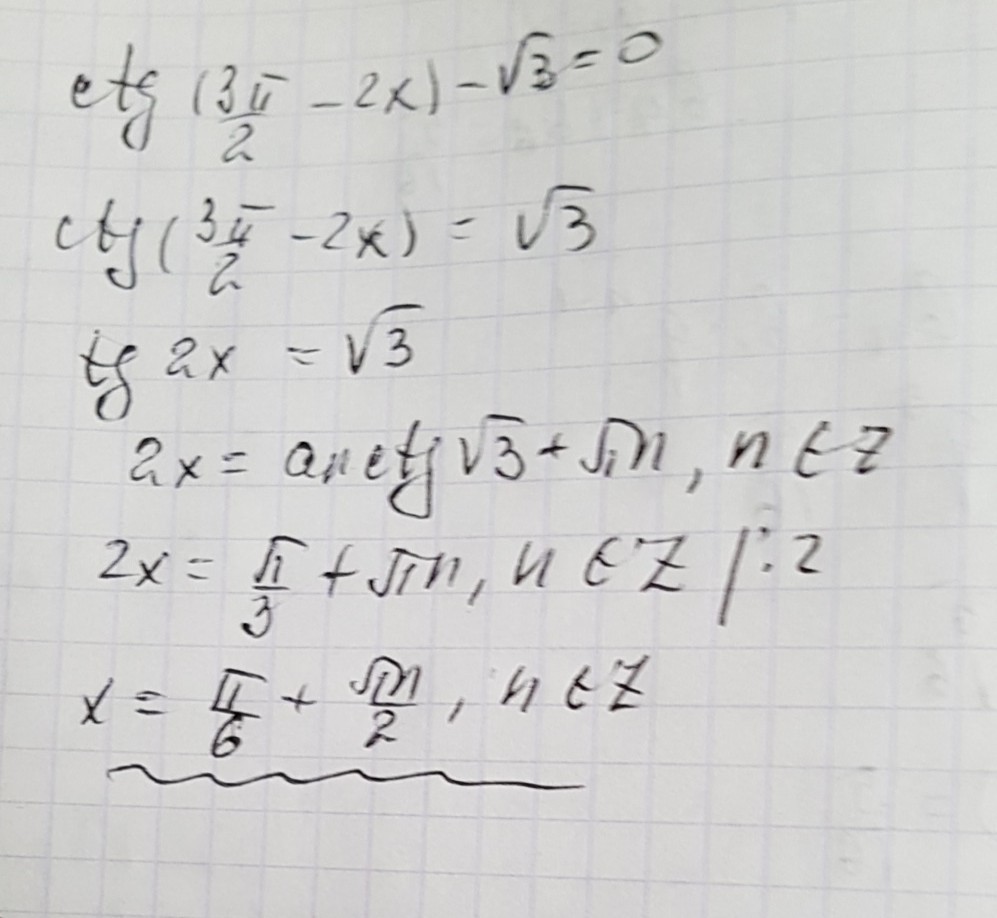 ctg (3π/2 - 2x) - √3 = 0
ctg (3π/2 - 2x) = √3
tg 2x = √3
2x = arctg √3 + πn, n ∈ Z
2x = π/3 + πn, n ∈ Z | : 2
x = π/6 + πn/2, n ∈ Z